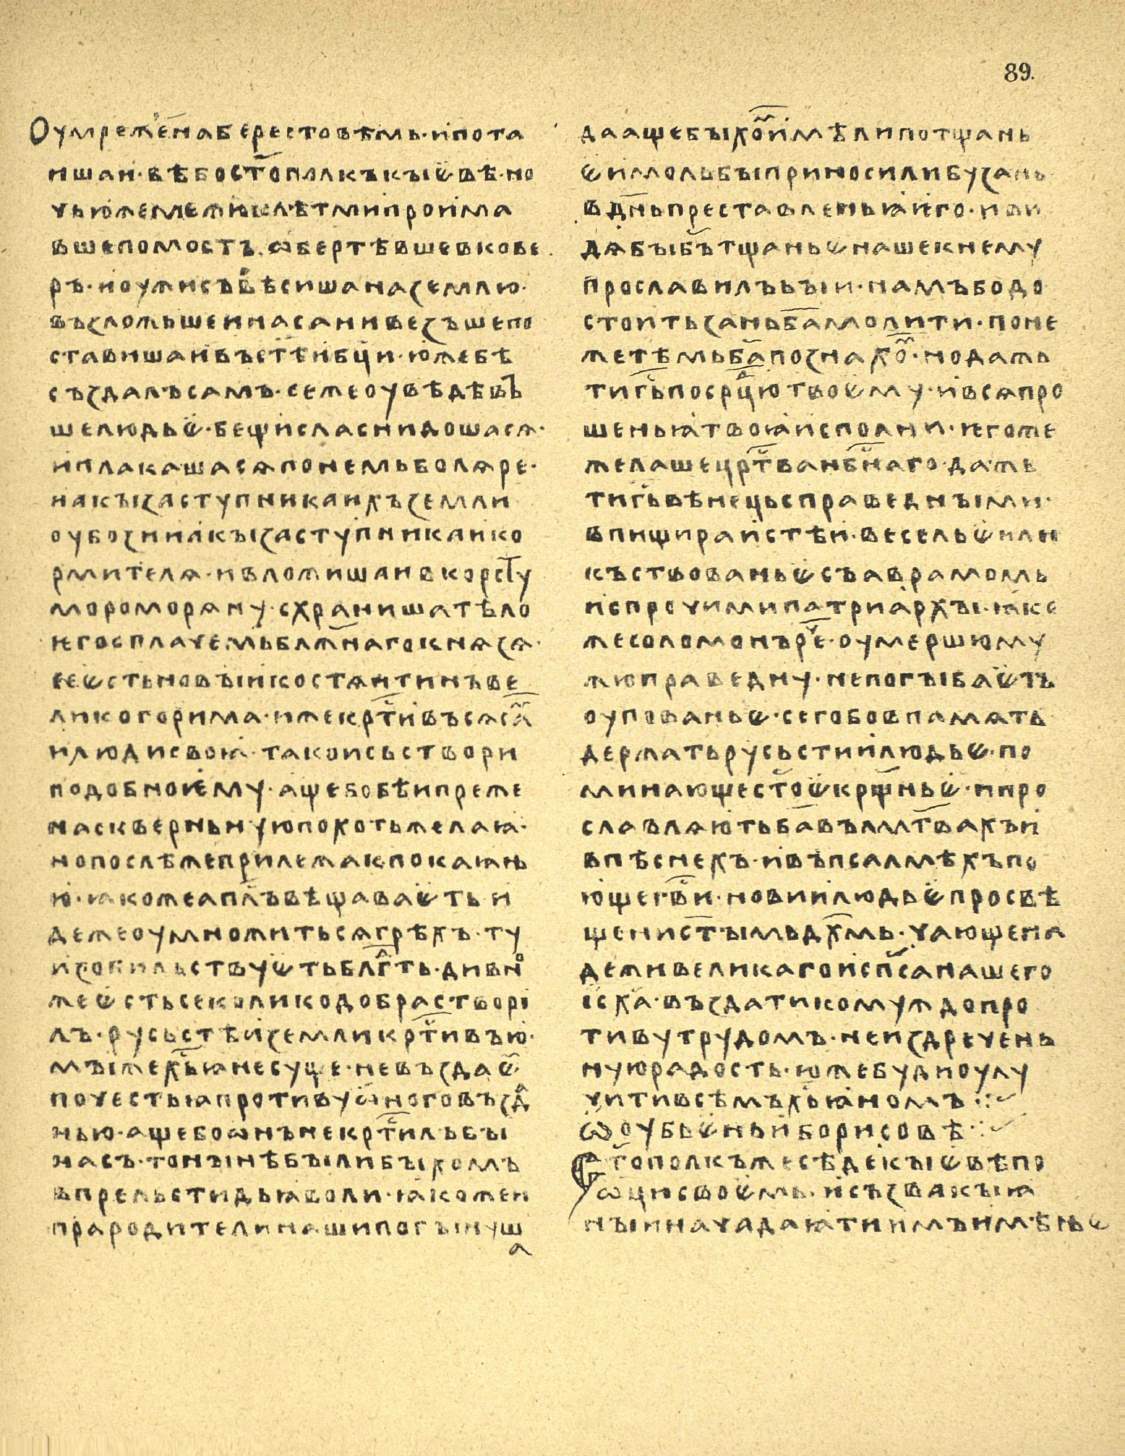 89.
Оумреже́наберестовѣмь·ипота
ишаи·бѣбост҃ополкъкыѥвѣ·но
чьюжемежиклѣтмипроима
вшепомостъ·ѡбертѣвшевкове
ръ·иоужисъвѣсишаназемлю·
възложьшеинасанивезъшепо
ставишаивъст҃ѣибц҃и·южебѣ
създалъсамъ·сежеоувѣдѣвъ
шелюдьѥ·бещисласнидошася·
иплакашасяпонемьболяре·
накызаступникаихъземли
оубозииакызаступникаико
рмителя·ивложишаивкорсту
мороморяну·схранишатѣло
ѥгосплачемьблж҃нагокнязя·
сеѥстьновыикостянтинъве
ликогорима·ижекрт҃ивъсяса҃
илюдисвоꙗ·такоисьствори
подобноѥму·ащебобѣипреже
наскверньнуюпохотьжелаꙗ·
нопослѣжеприлежакпокаꙗнь
ю·ꙗкожеапл҃ъвѣщаваѥть·и
дежеоумножитьсягрѣхъ·ту
изобильствуѥтьблг҃ть·дивно
жеѥстьсеколикодобрастворі
лъ·русьстѣиземликрт҃ивъю·
мыжехс҃ꙗнесуще·невъздаѥ
почестьꙗпротивуѡноговъзда
нью·ащебоѡнънекрт҃илъбы
насъ·тонынѣбылибыхомъ
впрельстидьꙗволи·ꙗкожеи
прародителинашипогынуш
а
даащебыхо҃имѣлипотщань
ѥимольбыприносилибузань
вдн҃ьпреставленьꙗиѥго·иви
дябыбъ҃тщаньѥнашекнему
прославилъбыи·намъбодо
стоитьзаньба҃молити·поне
жетѣмьба҃познахо҃·нодажь
тигъ҃посрц҃ютвоѥму·ивсяпро
шеньꙗтвоꙗисполни·ѥгоже
желашецр҃тванбс҃наго·дажь
тигь҃вѣнецьсправедными·
впищираистѣи·весельѥили
къствованьѥсъаврамомь
испрочимипатриархы·ꙗко
жесоломонър҃е·оумершюму
жюправедну·непогыбаѥть
оупованьѥ·сегобовпамять
держатьрусьстиилюдьѥ·по
минающест҃оѥкрщ҃ньѥ·ипро
славляютьба҃въмлт҃вахъи
впѣснехъ·ивъпсалмѣхъпо
ющегв҃и·новиилюдьѥпросвѣ
щенист҃ымьдх҃мь·чающена
деживеликагоисп҃санашего
іс҃ха·въздатикомуждопро
тивутрудомъ·неиздречень
нуюрадость·южебудиоулу
читивсѣмъхс҃ьꙗномъ·:·
Ѡоубьѥньиборисовѣ·:·
Ст҃ополкъжесѣдекыѥвѣпо
ѡц҃исвоѥмь·исъзвакыꙗ
ныиначадаꙗтиимъимѣньѥ